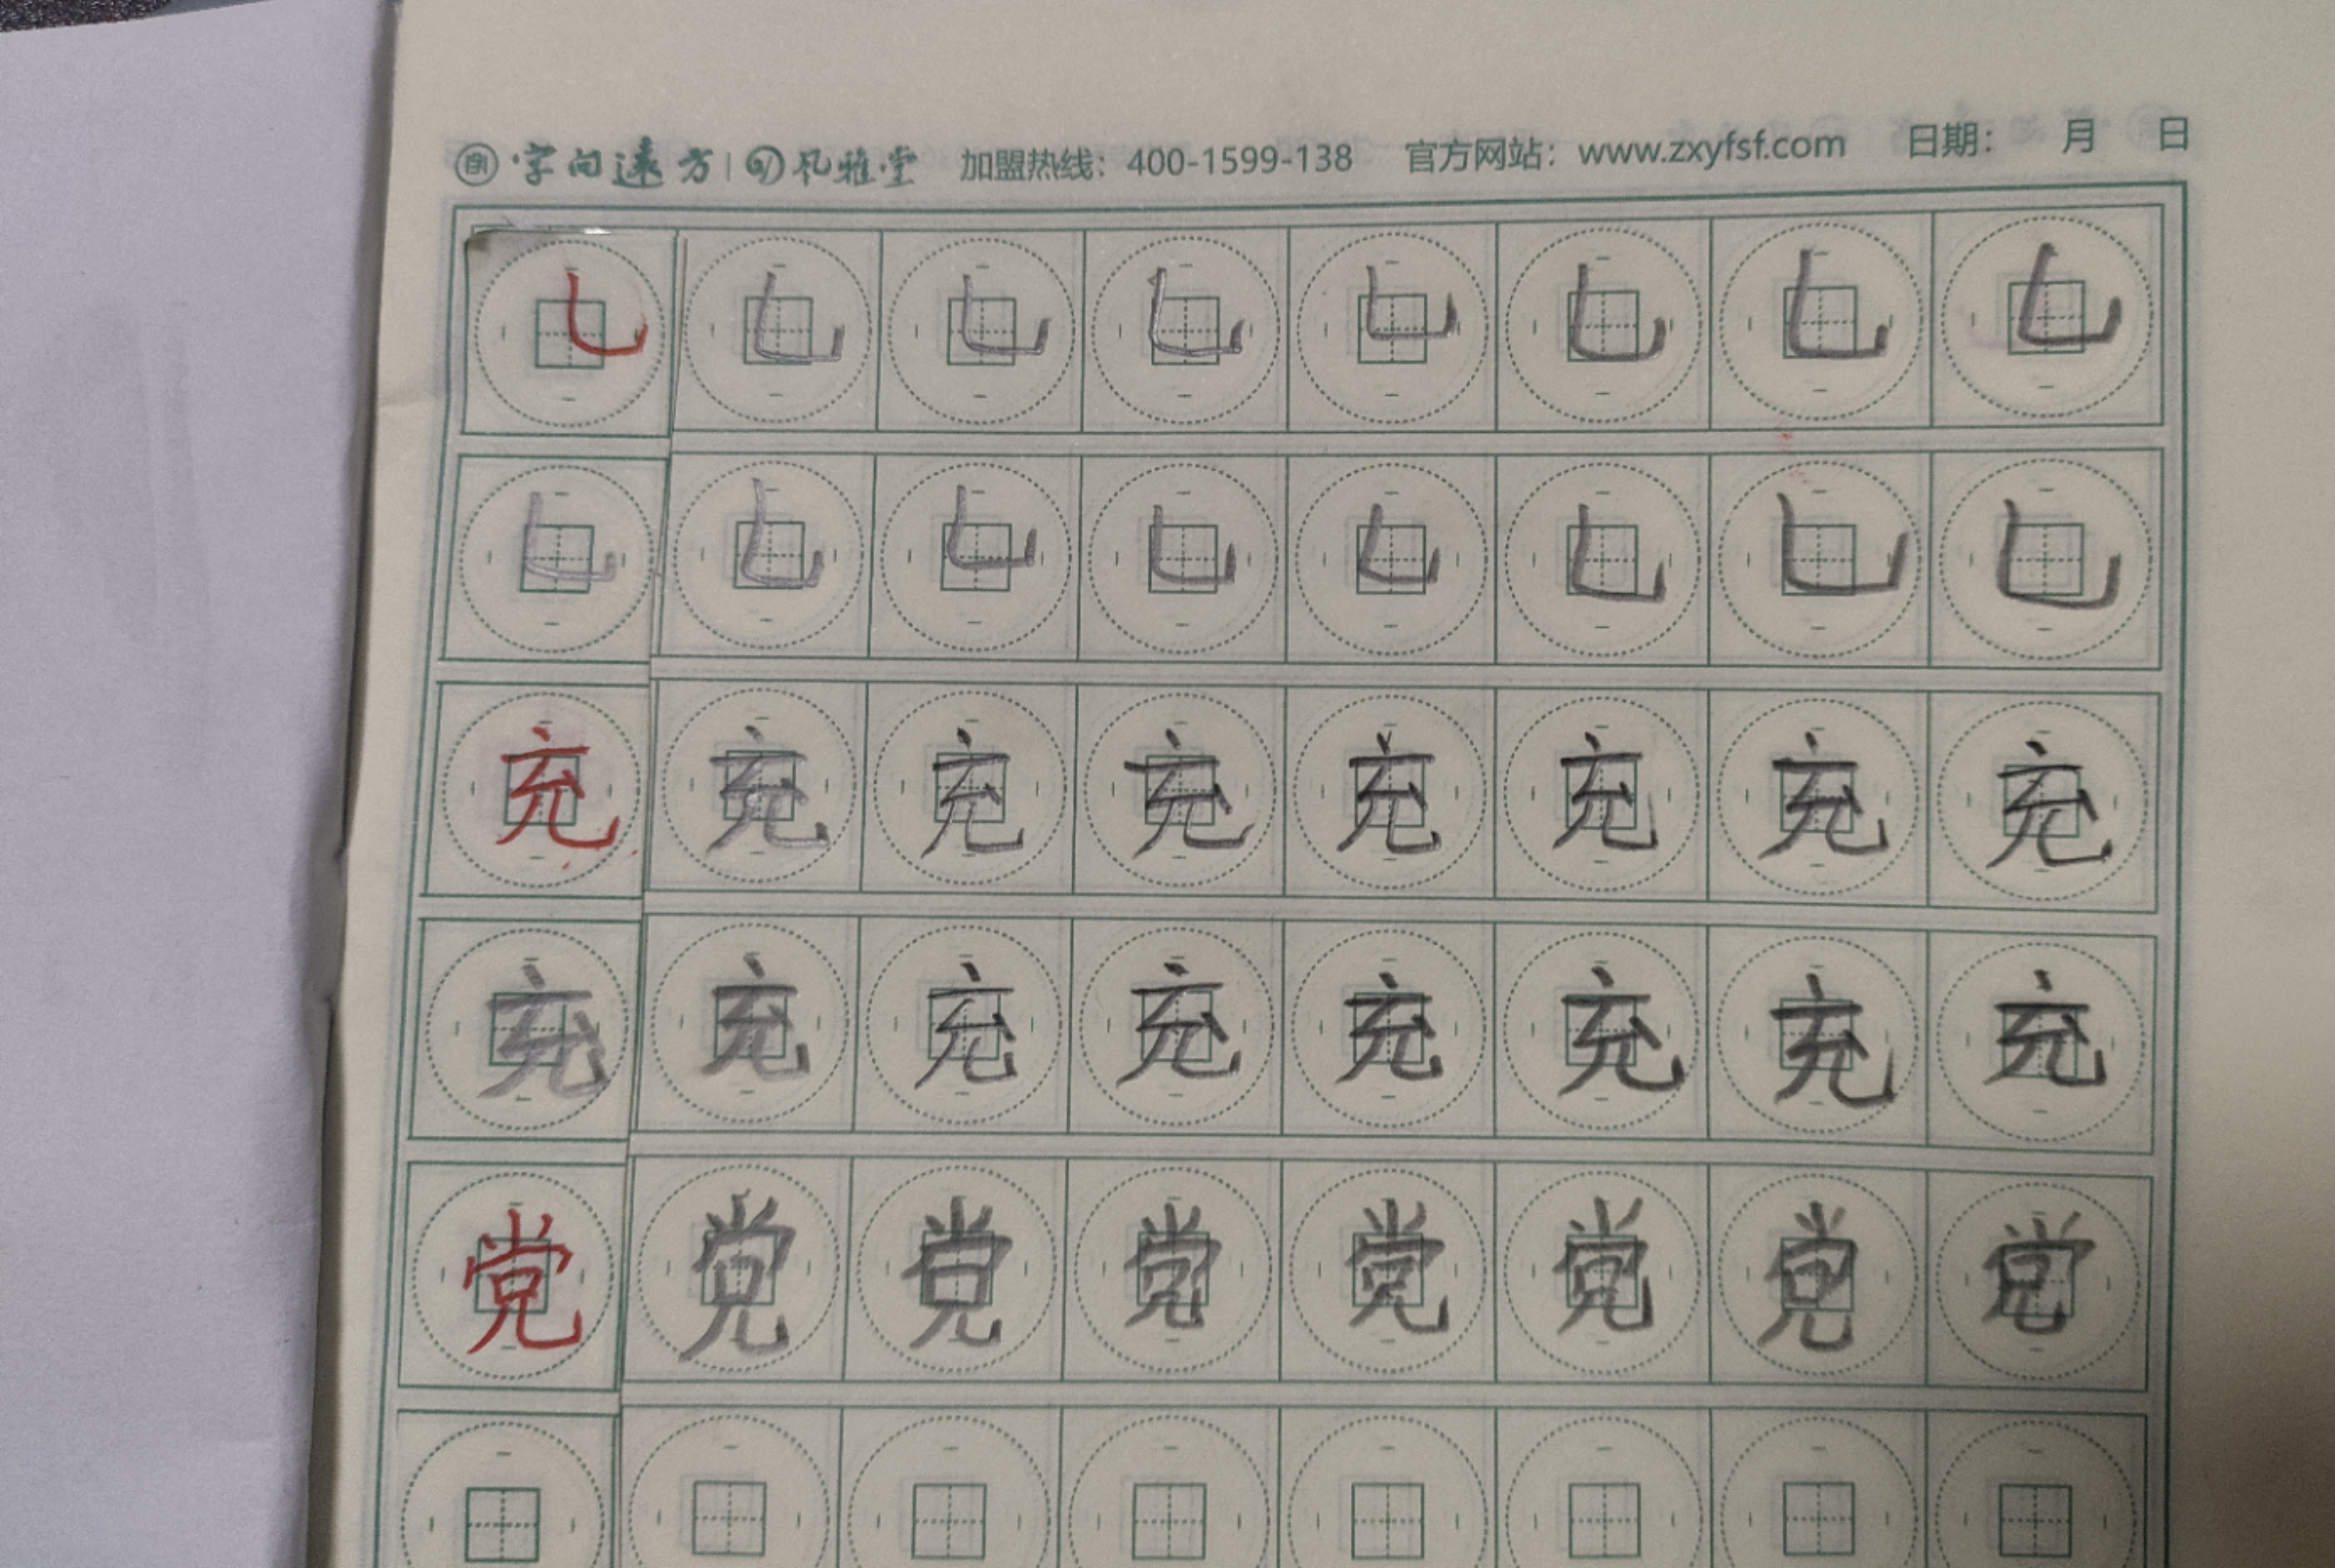 字向远方 | 风雅堂 加盟热线：400-1599-138 官方网站：www.zxyfsf.com 日期： 月 日
乚 乚 乚 乚 乚 乚 乚 乚
乚 乚 乚 乚 乚 乚 乚 乚
充 充 充 充 充 充 充 充
充 充 充 充 充 充 充 充
党 党 党 党 党 党 党 党